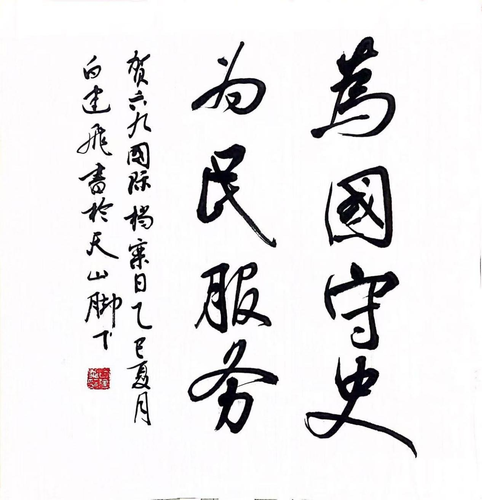 為國守史
为民服务
贺六九国际档案日乙巳夏月
白建飛書於天山脚下